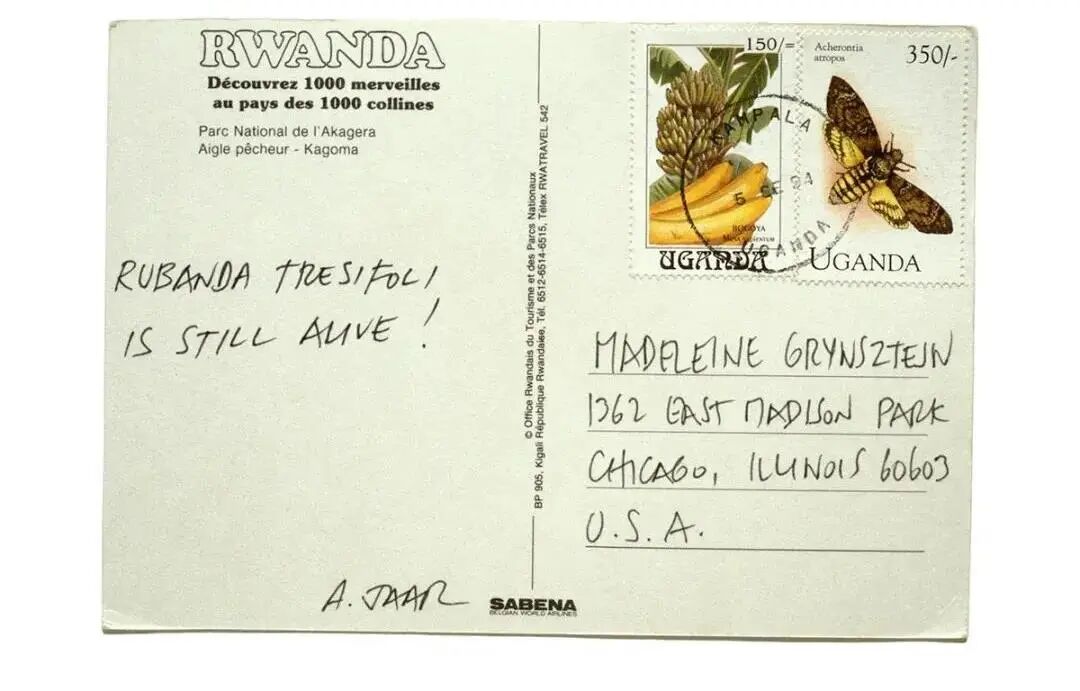 RWANDA
Découvrez 1000 merveilles
au pays des 1000 collines
Parc National de l'Akagera
Aigle pêcheur - Kagoma
RUBANDA TRESIFOLI
IS STILL ALIVE!
A. JAAR
SABENA
BELGIAN WORLD AIRLINES
© Office Rwandais du Tourisme et des Parcs Nationaux
BP 905, Kigali République Rwandaise, Tél. 6512-6514-6515, Télex RWATRAVEL 542
150/=
BOGOYA
UGANDA
Acherontia
atropos
350/-
UGANDA
KAMPALA
5 SE 94
UGANDA
MADELEINE GRYNSZTEJN
1362 EAST MADISON PARK
CHICAGO, ILLINOIS 60603
U.S.A.